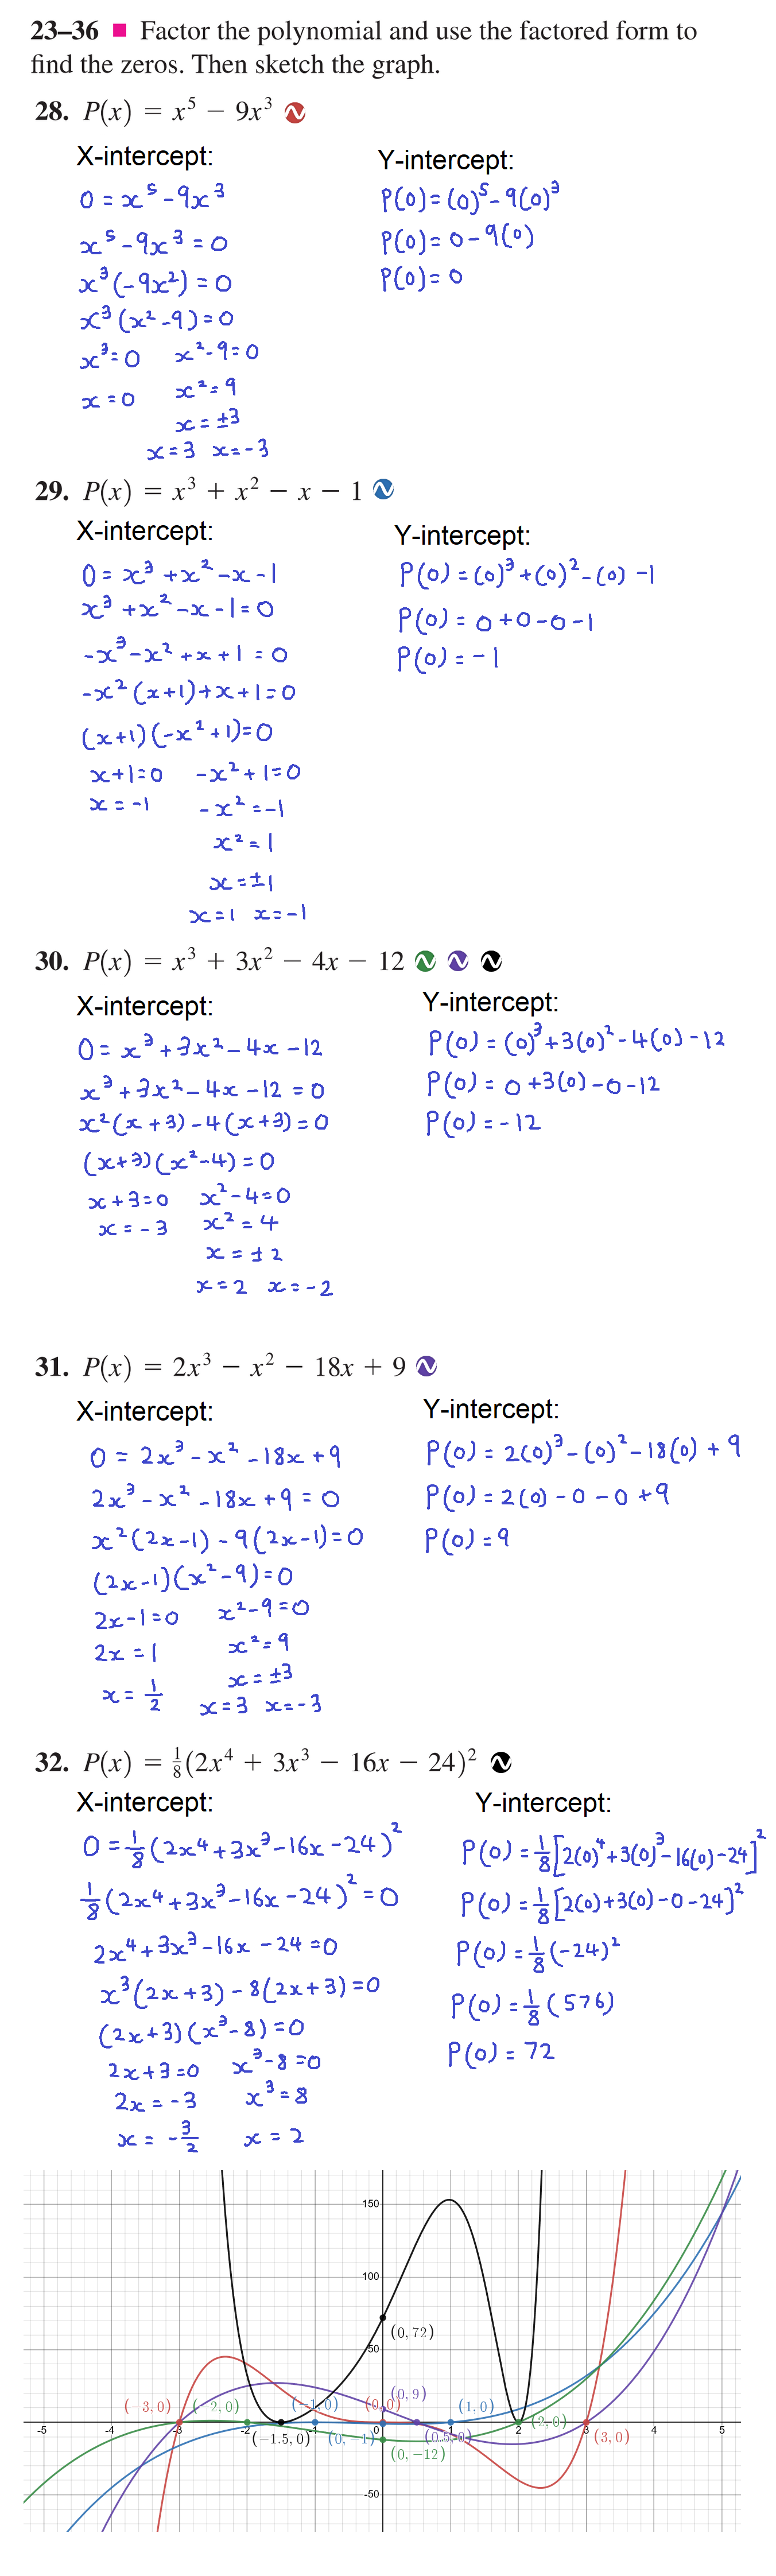 23–36 ■ Factor the polynomial and use the factored form to
find the zeros. Then sketch the graph.
28. P(x) = x⁵ − 9x³
X-intercept:
0 = x⁵ - 9x³
x⁵ - 9x³ = 0
x³(-9x²) = 0
x³(x² - 9) = 0
x³ = 0 x² - 9 = 0
x = 0 x² = 9
x = ±3
x = 3 x = -3
Y-intercept:
P(0) = (0)⁵ - 9(0)³
P(0) = 0 - 9(0)
P(0) = 0
29. P(x) = x³ + x² − x − 1
X-intercept:
0 = x³ + x² - x - 1
x³ + x² - x - 1 = 0
-x³ - x² + x + 1 = 0
-x²(x+1) + x + 1 = 0
(x+1)(-x² + 1) = 0
x + 1 = 0 -x² + 1 = 0
x = -1 -x² = -1
x² = 1
x = ±1
x = 1 x = -1
Y-intercept:
P(0) = (0)³ + (0)² - (0) - 1
P(0) = 0 + 0 - 0 - 1
P(0) = -1
30. P(x) = x³ + 3x² − 4x − 12
X-intercept:
0 = x³ + 3x² - 4x - 12
x³ + 3x² - 4x - 12 = 0
x²(x + 3) - 4(x + 3) = 0
(x+3)(x² - 4) = 0
x + 3 = 0 x² - 4 = 0
x = -3 x² = 4
x = ±2
x = 2 x = -2
Y-intercept:
P(0) = (0)³ + 3(0)² - 4(0) - 12
P(0) = 0 + 3(0) - 0 - 12
P(0) = -12
31. P(x) = 2x³ − x² − 18x + 9
X-intercept:
0 = 2x³ - x² - 18x + 9
2x³ - x² - 18x + 9 = 0
x²(2x - 1) - 9(2x - 1) = 0
(2x - 1)(x² - 9) = 0
2x - 1 = 0 x² - 9 = 0
2x = 1 x² = 9
x = 1/2 x = ±3
x = 3 x = -3
Y-intercept:
P(0) = 2(0)³ - (0)² - 18(0) + 9
P(0) = 2(0) - 0 - 0 + 9
P(0) = 9
32. P(x) = 1/8(2x⁴ + 3x³ − 16x − 24)²
X-intercept:
0 = 1/8(2x⁴ + 3x³ - 16x - 24)²
1/8(2x⁴ + 3x³ - 16x - 24)² = 0
2x⁴ + 3x³ - 16x - 24 = 0
x³(2x + 3) - 8(2x + 3) = 0
(2x + 3)(x³ - 8) = 0
2x + 3 = 0 x³ - 8 = 0
2x = -3 x³ = 8
x = -3/2 x = 2
Y-intercept:
P(0) = 1/8[2(0)⁴ + 3(0)³ - 16(0) - 24]²
P(0) = 1/8[2(0) + 3(0) - 0 - 24]²
P(0) = 1/8(-24)²
P(0) = 1/8(576)
P(0) = 72
150
100
(0, 72)
50
(0, 9)
(−3, 0) (−2, 0) (−1, 0) (0, 0) (1, 0)
-5 -4 -3 -2 -1 0 1 2 3 4 5
(2, 0)
(−1.5, 0) (0, −1) (0.5, 0) (3, 0)
(0, −12)
-50